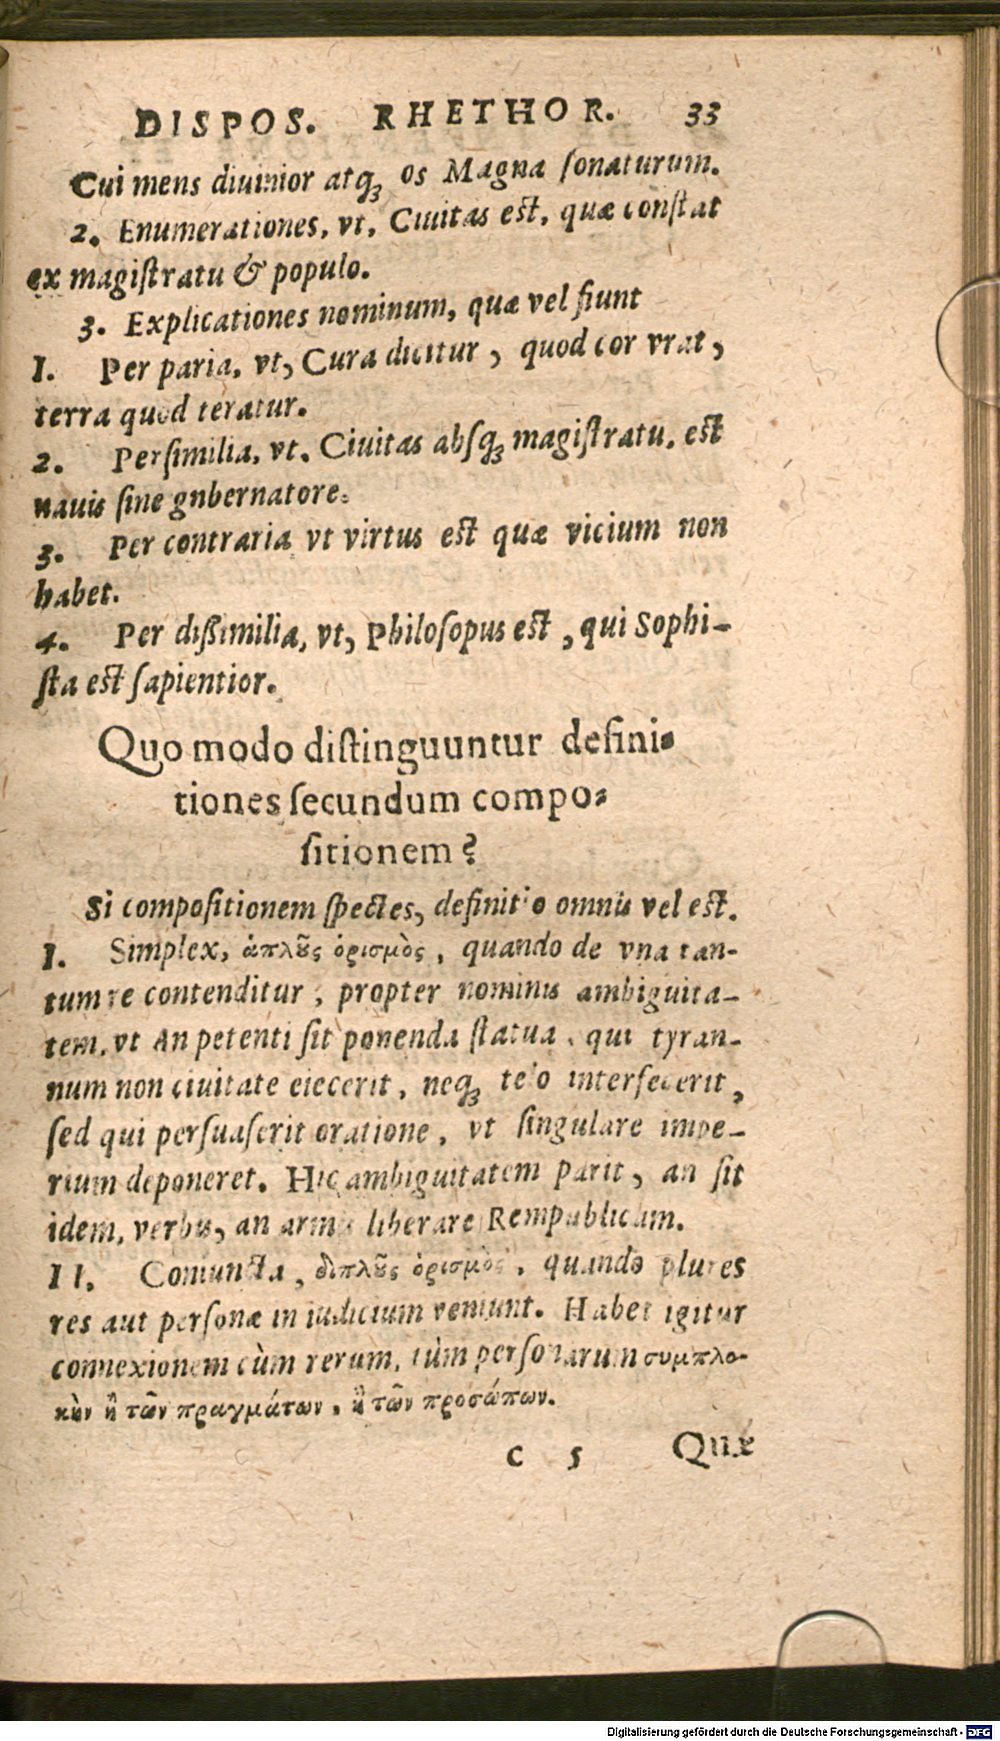 DISPOS. RHETHOR. 33
Cui mens diuinior atqꝫ os Magna ſonaturum.
2. Enumerationes, vt, Ciuitas eſt, quæ conſtat
ex magiſtratu & populo.
3. Explicationes nominum, quæ vel fiunt
1. Per paria, vt, Cura dicitur, quod cor vrat,
terra quod teratur.
2. Per ſimilia, vt, Ciuitas abſqꝫ magiſtratu, eſt
nauis ſine gnbernatore.
3. Per contraria vt virtus eſt quæ vicium non
habet.
4. Per dißimilia, vt, Philoſopus eſt, qui Sophi-
ſta eſt ſapientior.
Quo modo diſtinguuntur defini-
tiones ſecundum compo-
ſitionem?
Si compoſitionem ſpectes, definitio omnis vel eſt.
I. Simplex, ἁπλοῦς ὁρισμὸς, quando de vna tan-
tum re contenditur, propter nominis ambiguita-
tem, vt An petenti ſit ponenda ſtatua, qui tyran-
num non ciuitate eiecerit, neqꝫ telo interfecerit,
ſed qui perſuaſerit oratione, vt ſingulare impe-
rium deponeret. Hic ambiguitatem parit, an ſit
idem, verbis, an armis liberare Rempublicam.
II. Coniuncta, διπλοῦς ὁρισμὸς, quando plures
res aut perſonæ in iudicium veniunt. Habet igitur
connexionem cùm rerum, tùm perſonarum συμπλο-
κὴν ἢ τῶν πραγμάτων, ἢ τῶν προσώπων.
C 5 Quæ
Digitalisierung gefördert durch die Deutsche Forschungsgemeinschaft - DFG